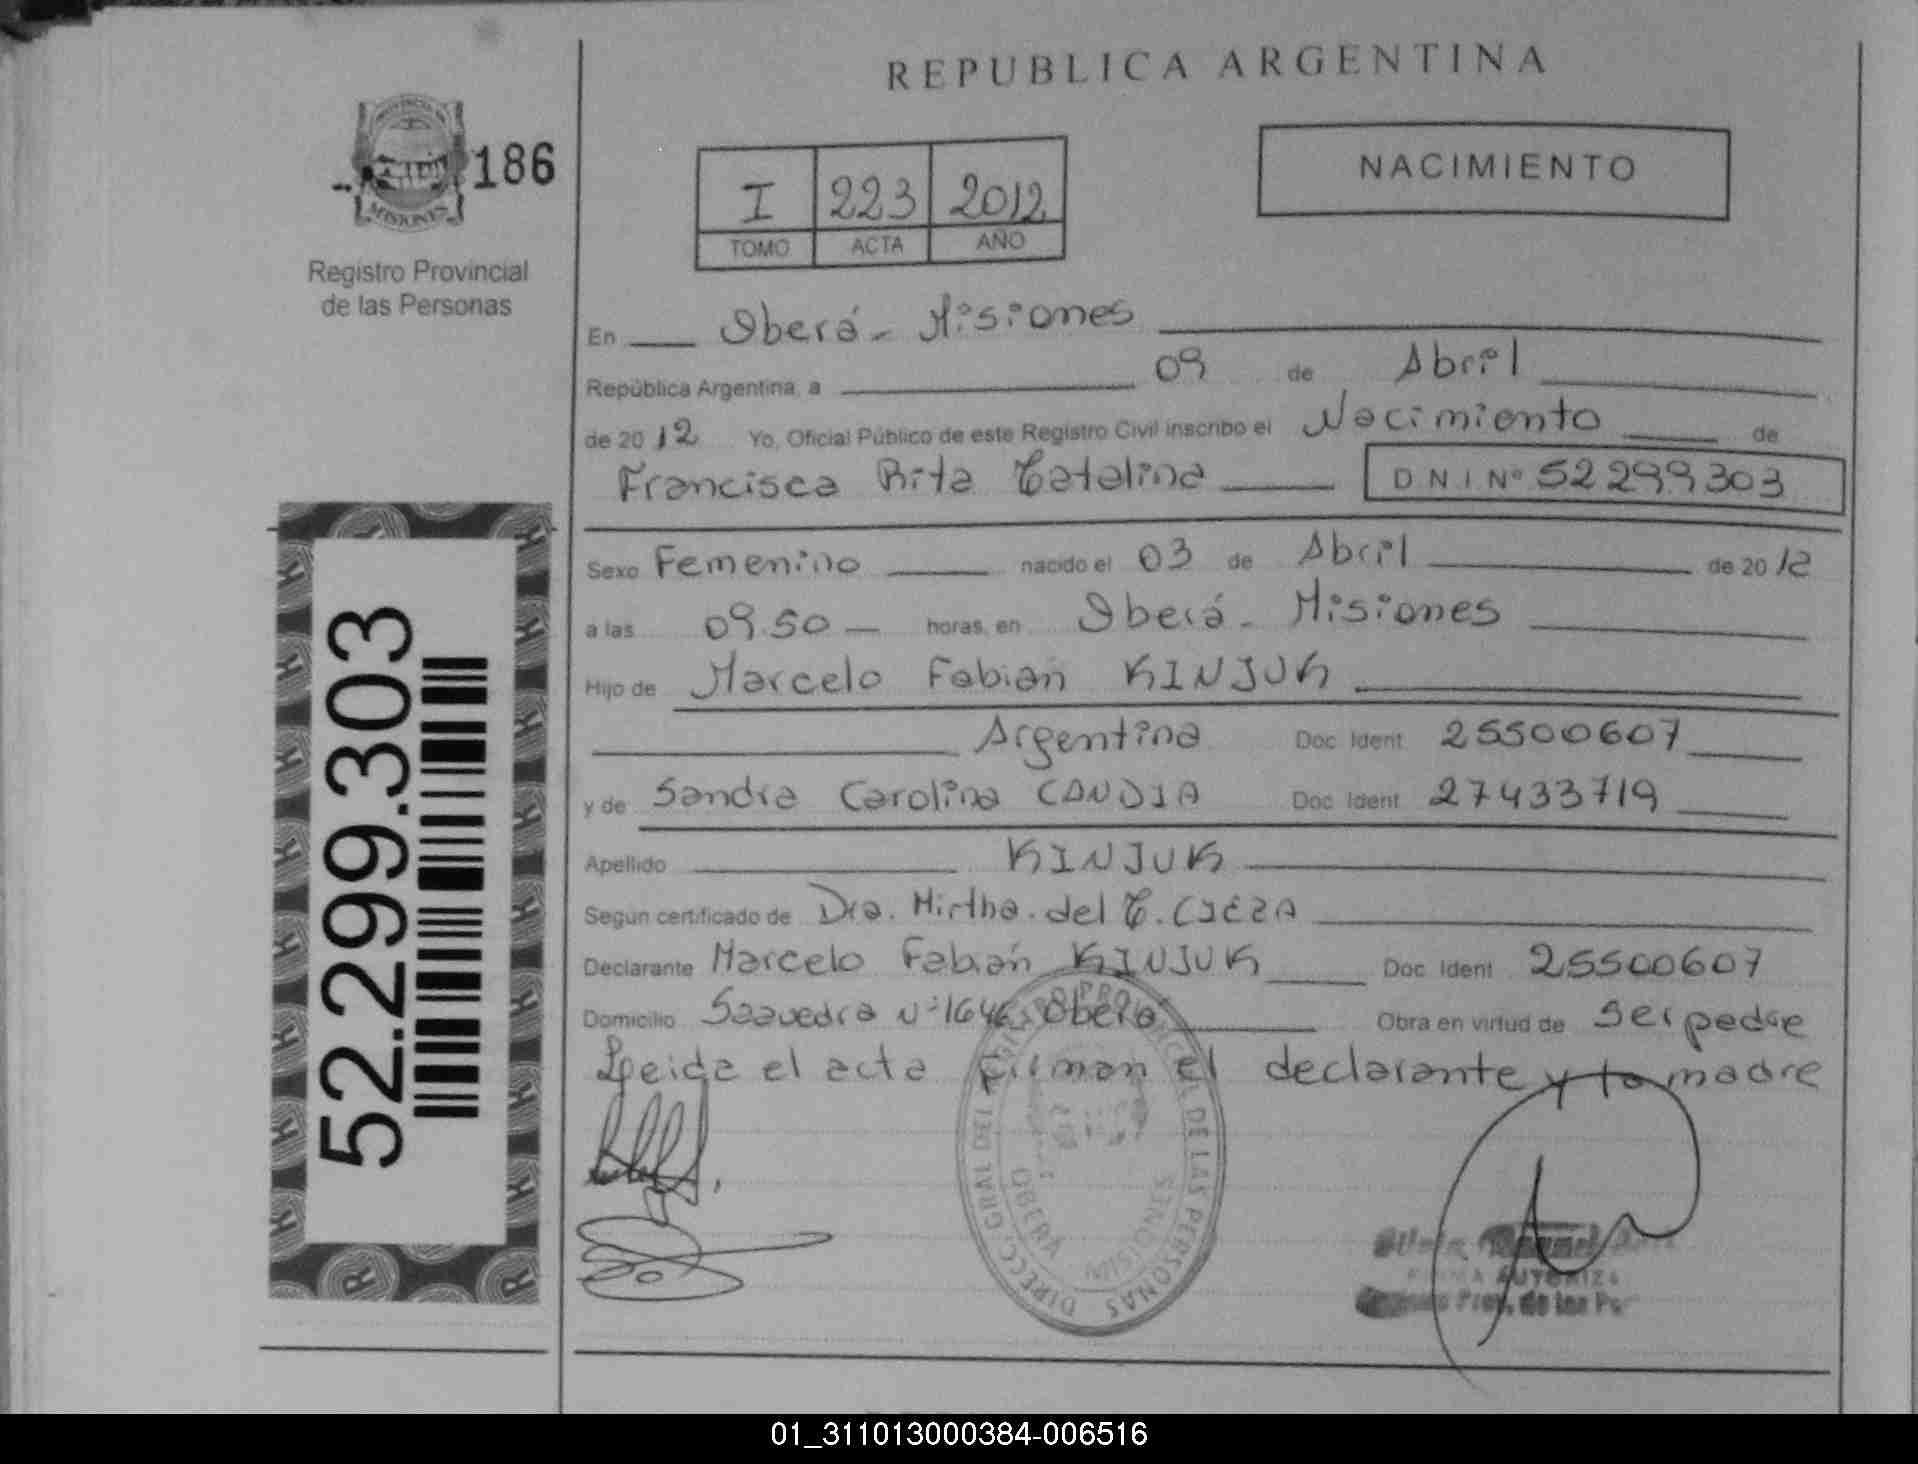 REPUBLICA ARGENTINA
PROVINCIA DE
MISIONES
186
Registro Provincial
de las Personas
I 223 2012
TOMO ACTA AÑO
NACIMIENTO
En Oberá - Misiones
República Argentina, a 09 de Abril
de 2012 Yo, Oficial Público de este Registro Civil inscribo el Nacimiento de
Francisca Rita Catalina DNI Nº 52299303
Sexo Femenino nacido el 03 de Abril de 2012
a las 09.50 horas, en Oberá - Misiones
Hijo de Marcelo Fabián KINJUK
Argentina Doc. Ident. 25500607
y de Sandra Carolina CANDIA Doc. Ident. 27433719
Apellido KINJUK
Según certificado de Dra. Mirtha del C.
Declarante Marcelo Fabián KINJUK Doc. Ident. 25500607
Domicilio Saavedra Nº 1646 Oberá Obra en virtud de ser padre
Leida el acta firman el declarante y la madre
DIRECC. GRAL DEL REGISTRO PROVINCIAL DE LAS PERSONAS
OBERA
MISIONES
FIRMA AUTORIZA
Prov. de las Per
52.299.303
01_311013000384-006516